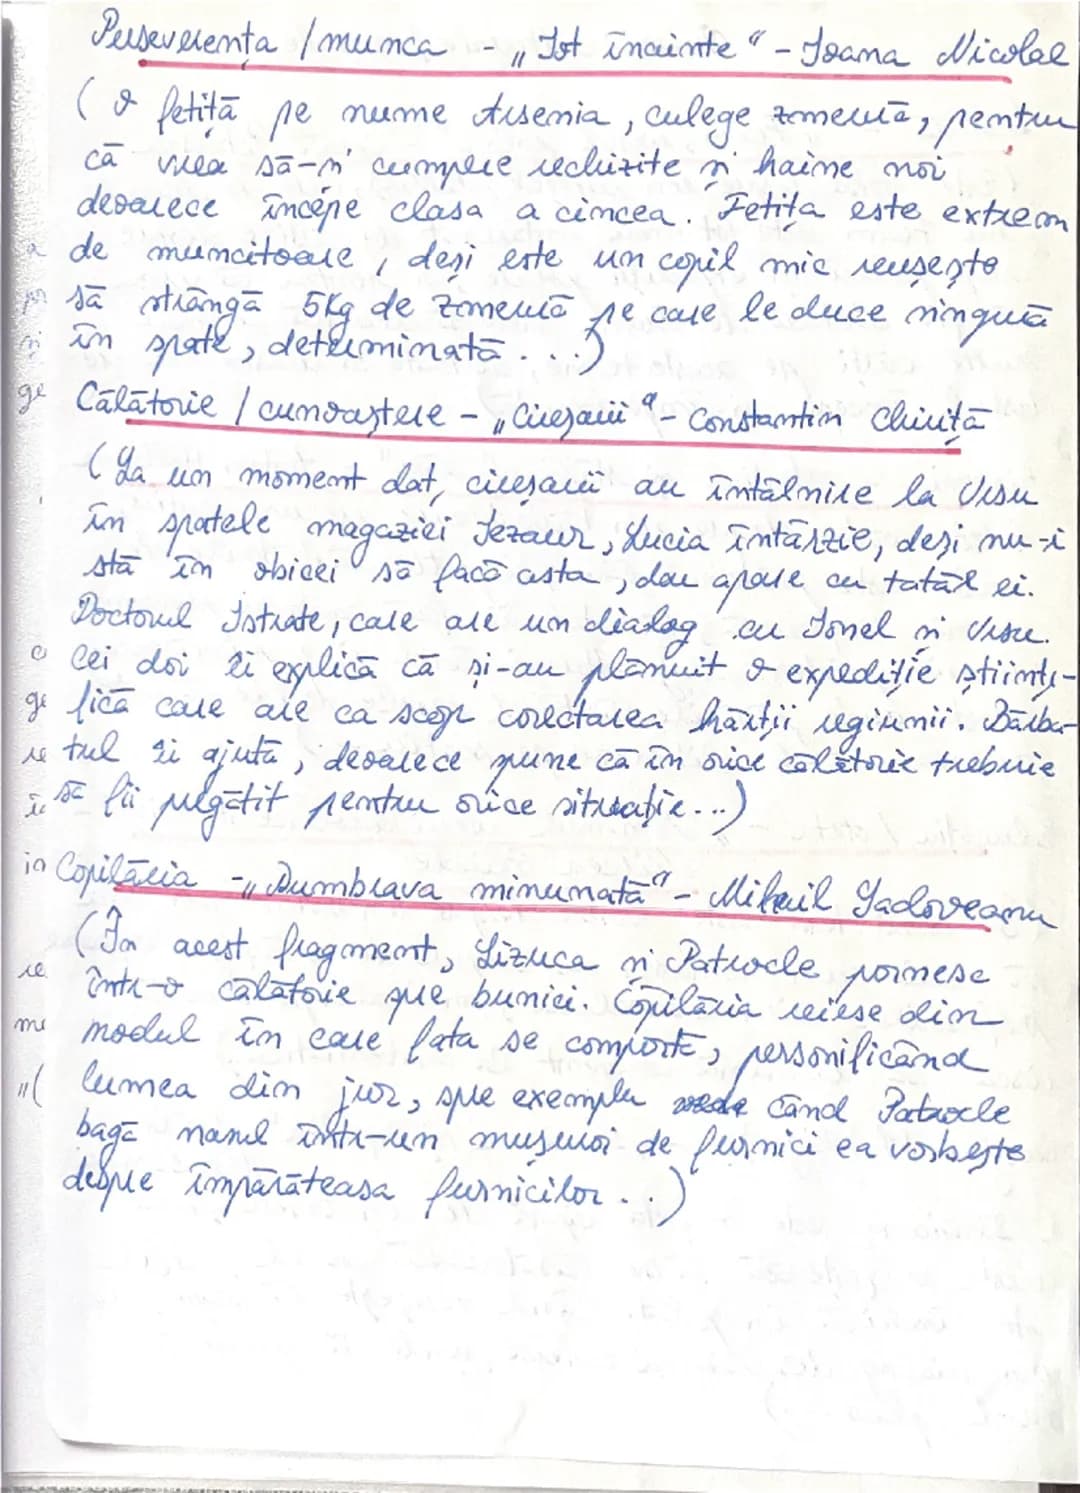 Perseverența / munca - „Tot înainte" - Ioana Nicolae
(O fetiță pe nume Arsenia, culege zmeură, pentru
că vrea să-și cumpere rechizite și haine noi
deoarece începe clasa a cincea. Fetița este extrem
de muncitoare, deși este un copil mic reușește
să strângă 5kg de zmeură pe care le duce singură
în spate, determinată...)
Călătorie / cunoaștere - „Cireșarii" - Constantin Chiriță
(La un moment dat, cireșarii au întâlnire la Ursu
în spatele magaziei Tezaur, Lucia întârzie, deși nu-i
stă în obicei să facă asta, dar apare cu tatăl ei.
Doctorul Istrate, care are un dialog cu Ionel și Ursu.
Cei doi îi explică că și-au plănuit o expediție științi-
fică care are ca scop corectarea hărții regiunii. Bărba-
tul îi ajută, deoarece spune că în orice călătorie trebuie
să fii pregătit pentru orice situație...)
Copilăria - „Dumbrava minunată" - Mihail Sadoveanu
(În acest fragment, Lizuca și Patrocle pornesc
într-o călătorie spre bunici. Copilăria reiese din
modul în care fata se comportă, personificând
lumea din jur, spre exemplu când Patrocle
bagă nasul într-un mușuroi de furnici ea vorbește
despre împărăteasa furnicilor...)